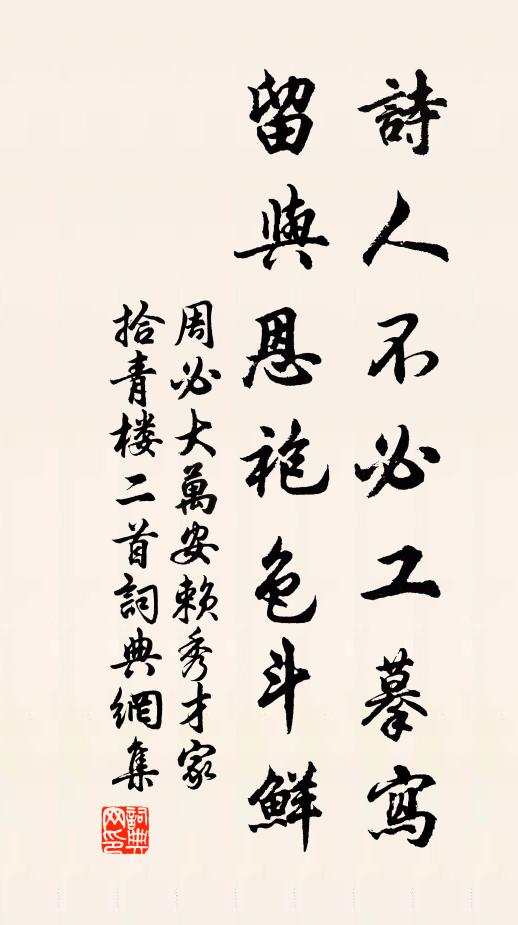 詩人不必工摹寫
留與恩袍色斗鮮
周必大萬安賴秀才家
拾青楼二首詞典網集
詞典
网印